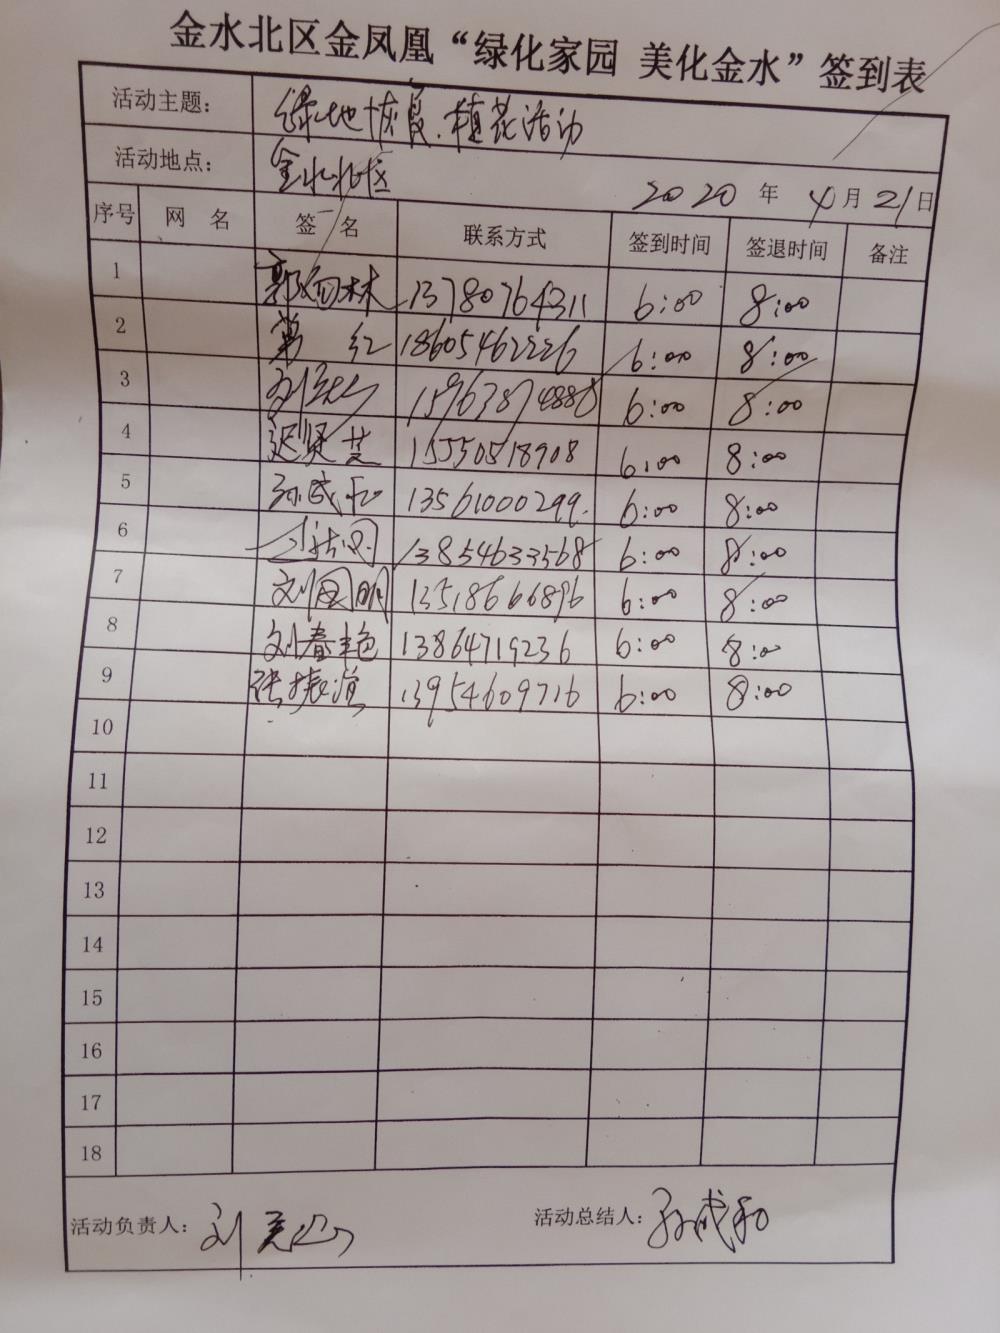 金水北区金凤凰“绿化家园 美化金水”签到表
活动主题： 绿地恢复.植花活动
活动地点： 金水北区 2020 年 4 月 21 日
序号 网 名 签 名 联系方式 签到时间 签退时间 备注
1 13780764311 6:00 8:00
2 红 18605462226 6:00 8:00
3 15963874888 6:00 8:00
4 迟贤芝 15550518908 6:00 8:00
5 孙成和 13561000299. 6:00 8:00
6 13854633568 6:00 8:00
7 刘国明 13518666896 6:00 8:00
8 刘春艳 13864719236 6:00 8:00
9 张振 13954609716 6:00 8:00
10
11
12
13
14
15
16
17
18
活动负责人： 刘 山 活动总结人： 孙成和